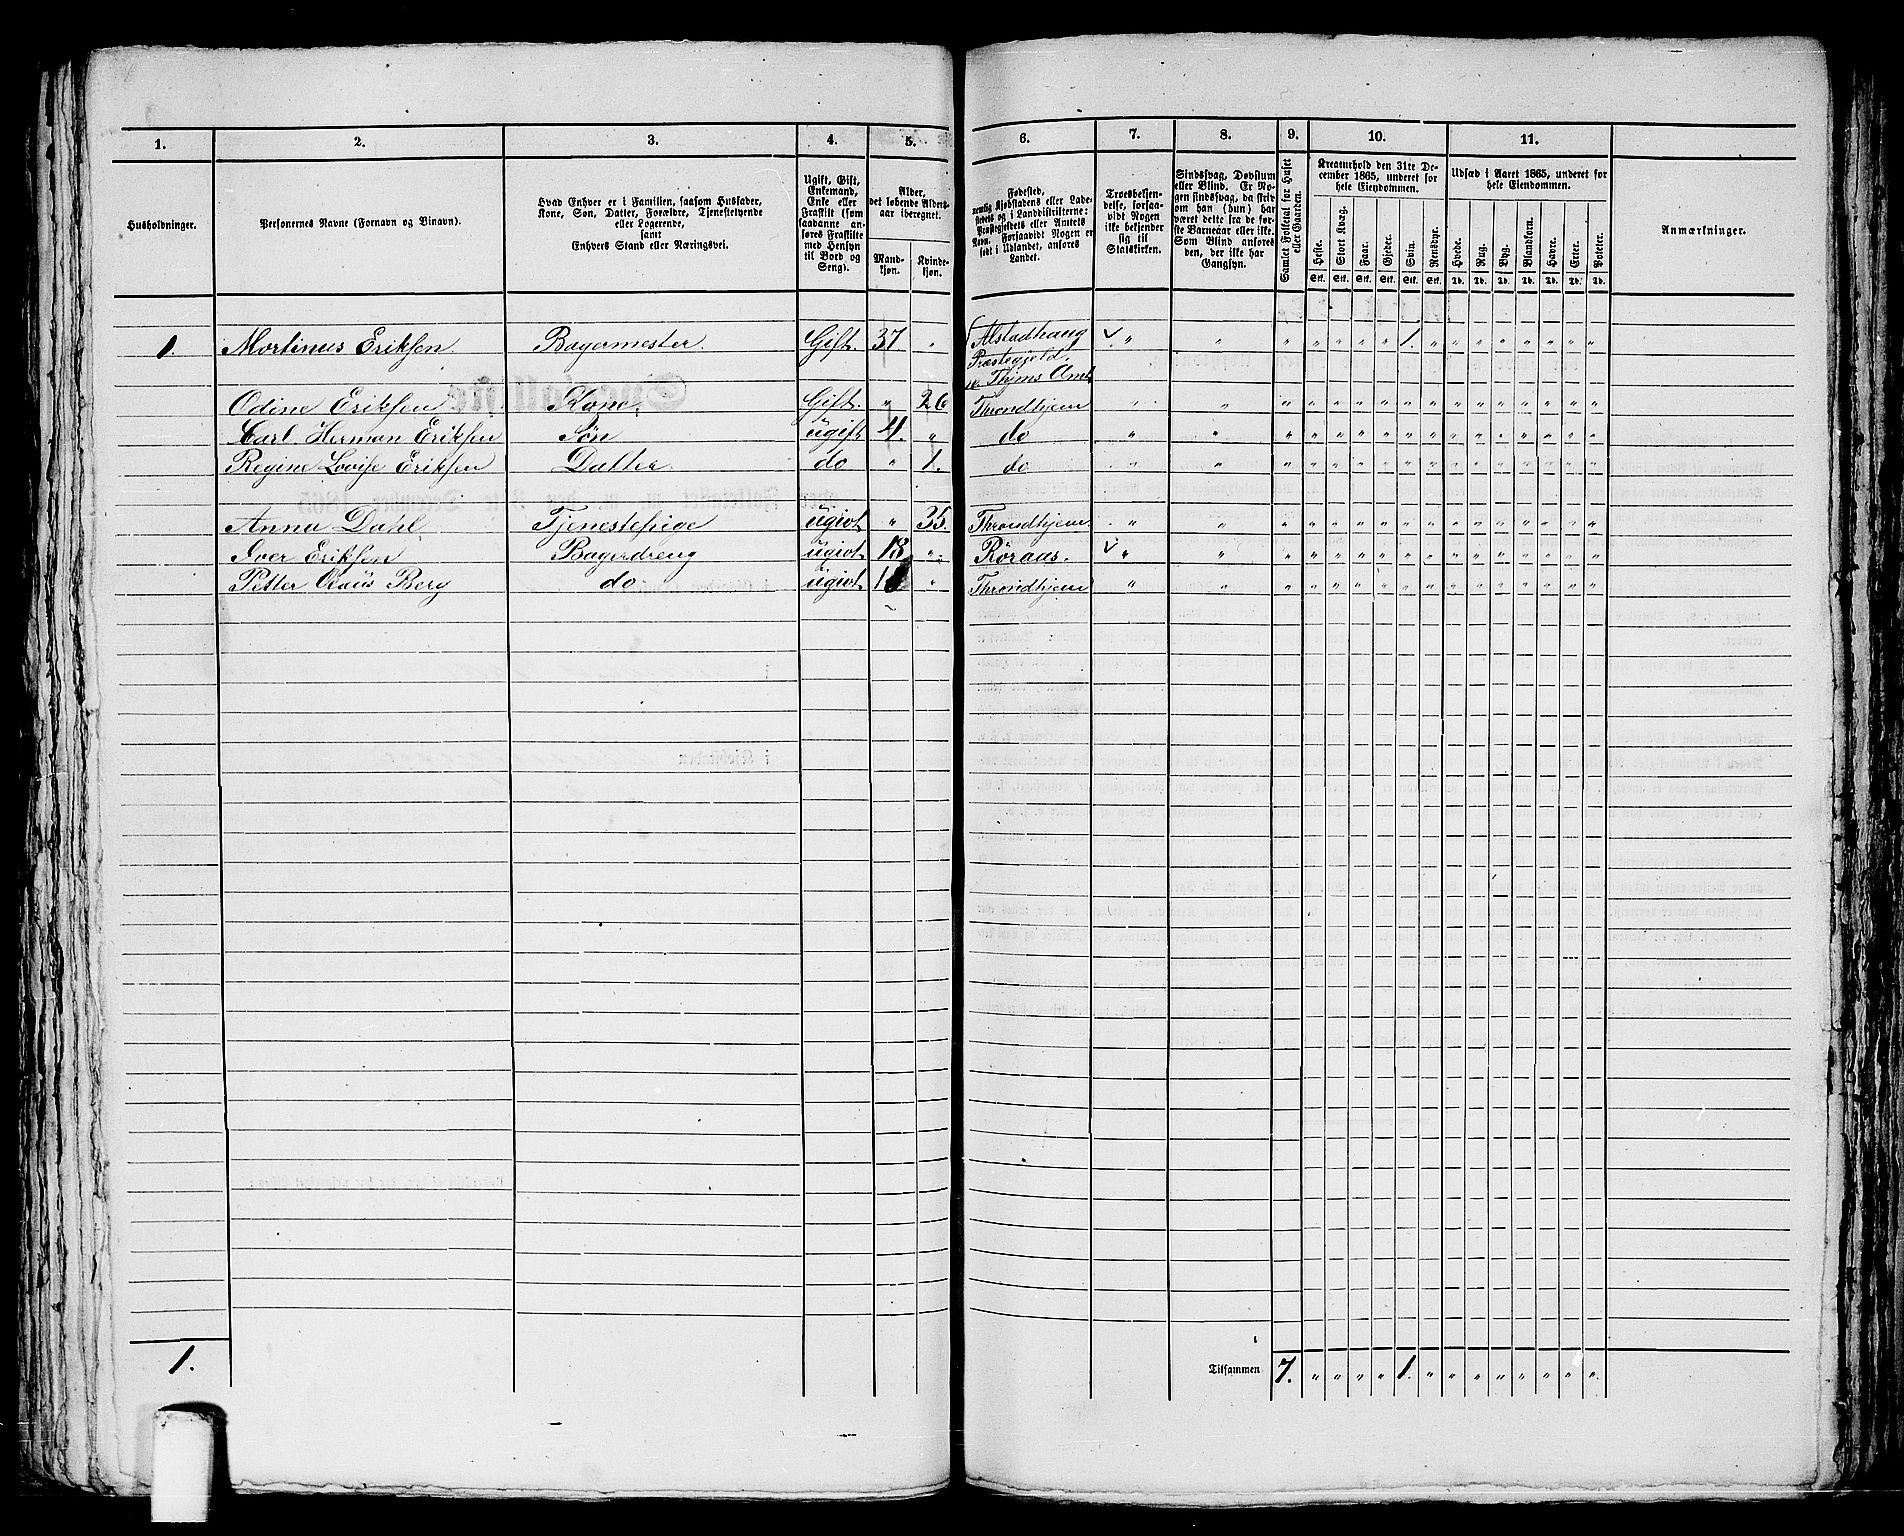 1. 2. 3. 4. 5. 6. 7. 8. 9. 10. 11.
Husholdninger.
Personernes Navne (Fornavn og Tilnavn).
Hvad Enhver er i Familien, saasom Husfader,
Kone, Søn, Datter, Forældre, Tjenestetyende
eller Logerende,
samt
Enhvers Stand eller Næringsvei.
Ugift, Gift,
Enkemand,
Enke eller
Fraskilt (som
saadanne an-
føres Fraskilte
med Hensyn
til Bord og
Seng).
Alder,
det løbende Alders-
aar iberegnet.
Mand-
kjøn.
Kvinde-
kjøn.
Fødested,
nemlig Kjøbstadens eller Lade-
stedets og i Landdistrikterne:
Præstegjeldets eller Amtets
Navn. Forsaavidt Nogen er
født i Udlandet, anføres
Landet.
Troesbekjen-
delse, forsaa-
vidt Nogen
ikke bekjender
sig til
Statskirken.
Sindssvag, Døvstum
eller Blind. Er No-
gen sindssvag, da skriv
om han (hun) har
været dette fra de før-
ste Barneaar eller ikke.
Som Blind anføres
den, der ikke har
Gangsyn.
Samlet Folketal for Huset
eller Gaarden.
Kreaturhold den 31te De-
cember 1865, underet for
hele Eiendommen.
Heste. Stort Kvæg. Faar. Gjeder. Svin. Rensdyr.
Stk. Stk. Stk. Stk. Stk. Stk.
Udsæd i Aaret 1865, underet for
hele Eiendommen.
Hvede. Rug. Byg. Blandkorn. Havre. Erter. Poteter.
Td. Td. Td. Td. Td. Td. Td.
Anmærkninger.
1. Mortinus Eriksen. Bagermester. Gift. 37 " Alstadhaug " " " " " " " 1. " " " " " " " "
Præstegjeld.
Thjms Amt
Odine Eriksen Kone. Gift. " 26 Throndhjem " " " " " " " " " " " " " " " "
Carl Herman Eriksen Søn ugift 4. " do " " " " " " " " " " " " " " " "
Regine Lovise Eriksen Datter do " 1. do " " " " " " " " " " " " " " " "
Anna Dahl Tjenestepige ugivt " 35. Throndhjem " " " " " " " " " " " " " " " "
Iver Eriksen Bagerdreng ugivt 18 " Røraas. " " " " " " " " " " " " " " " "
Petter Claus Berg do ugivt " Throndhjem " " " " " " " " " " " " " " " "
1.
Tilsammen 7. " " " " 1. " " " " " " " "